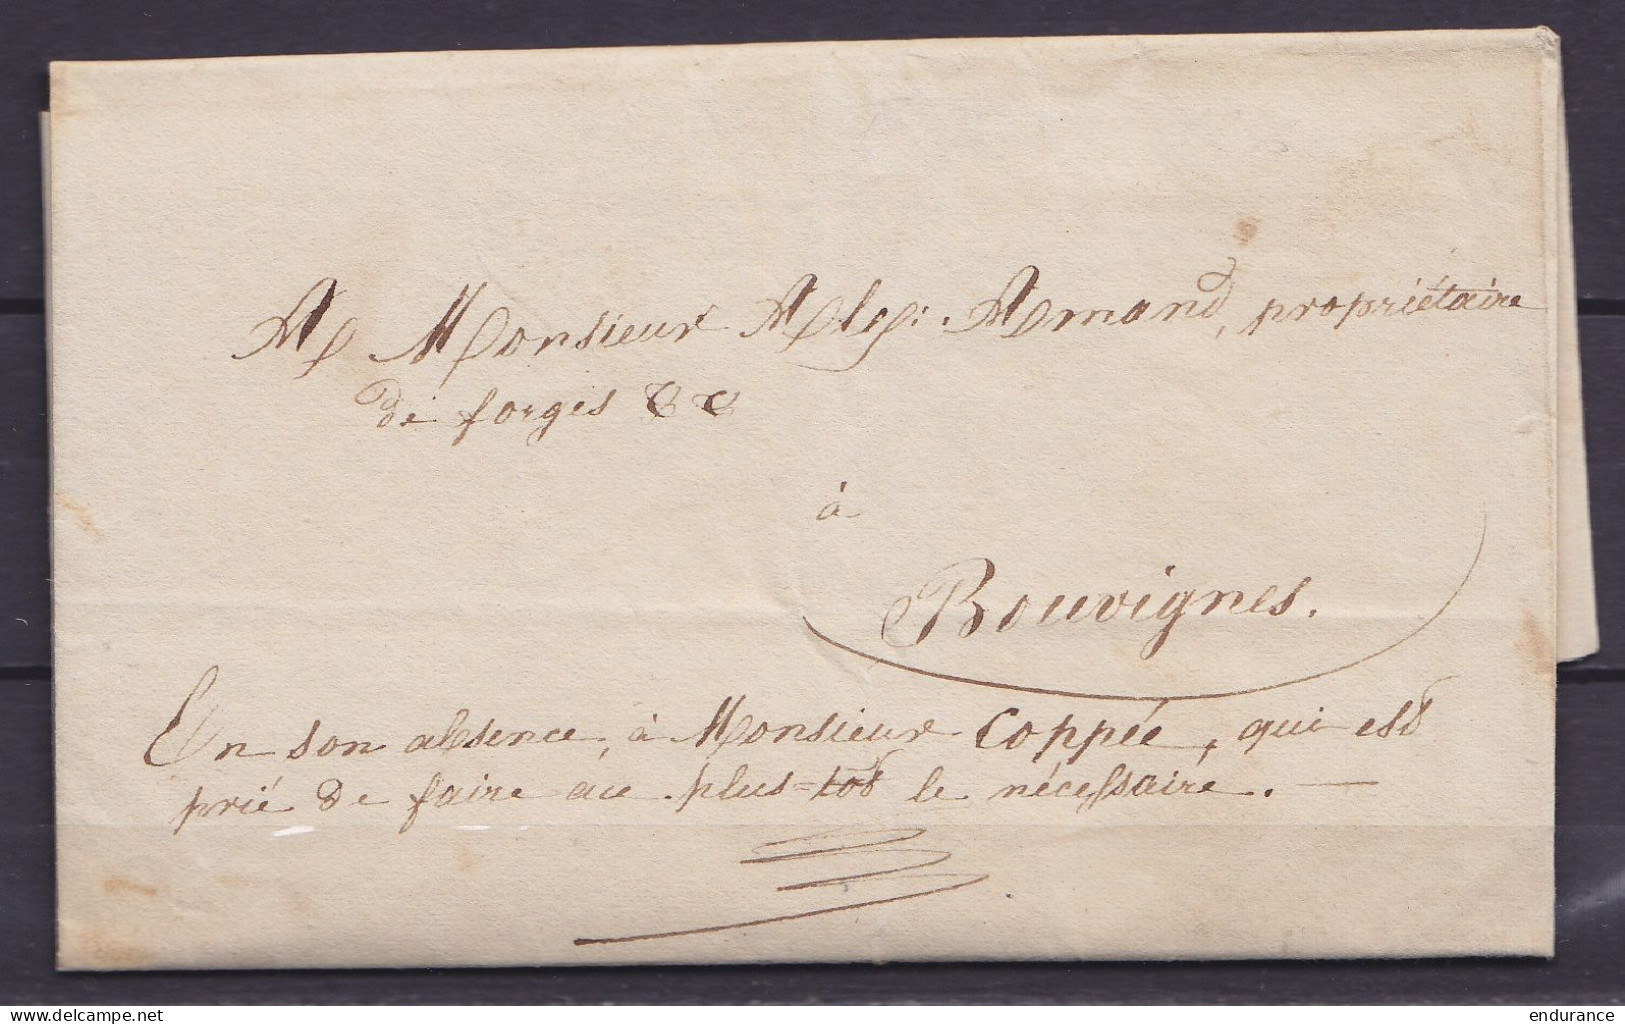 A Monsieur Alex: Amand, propriétaire
de forges &c &c
à
Bouvignes.
En son absence, à Monsieur Coppée, qui est
prié de faire au plus-tôt le nécessaire. —
delcampe.net
endurance